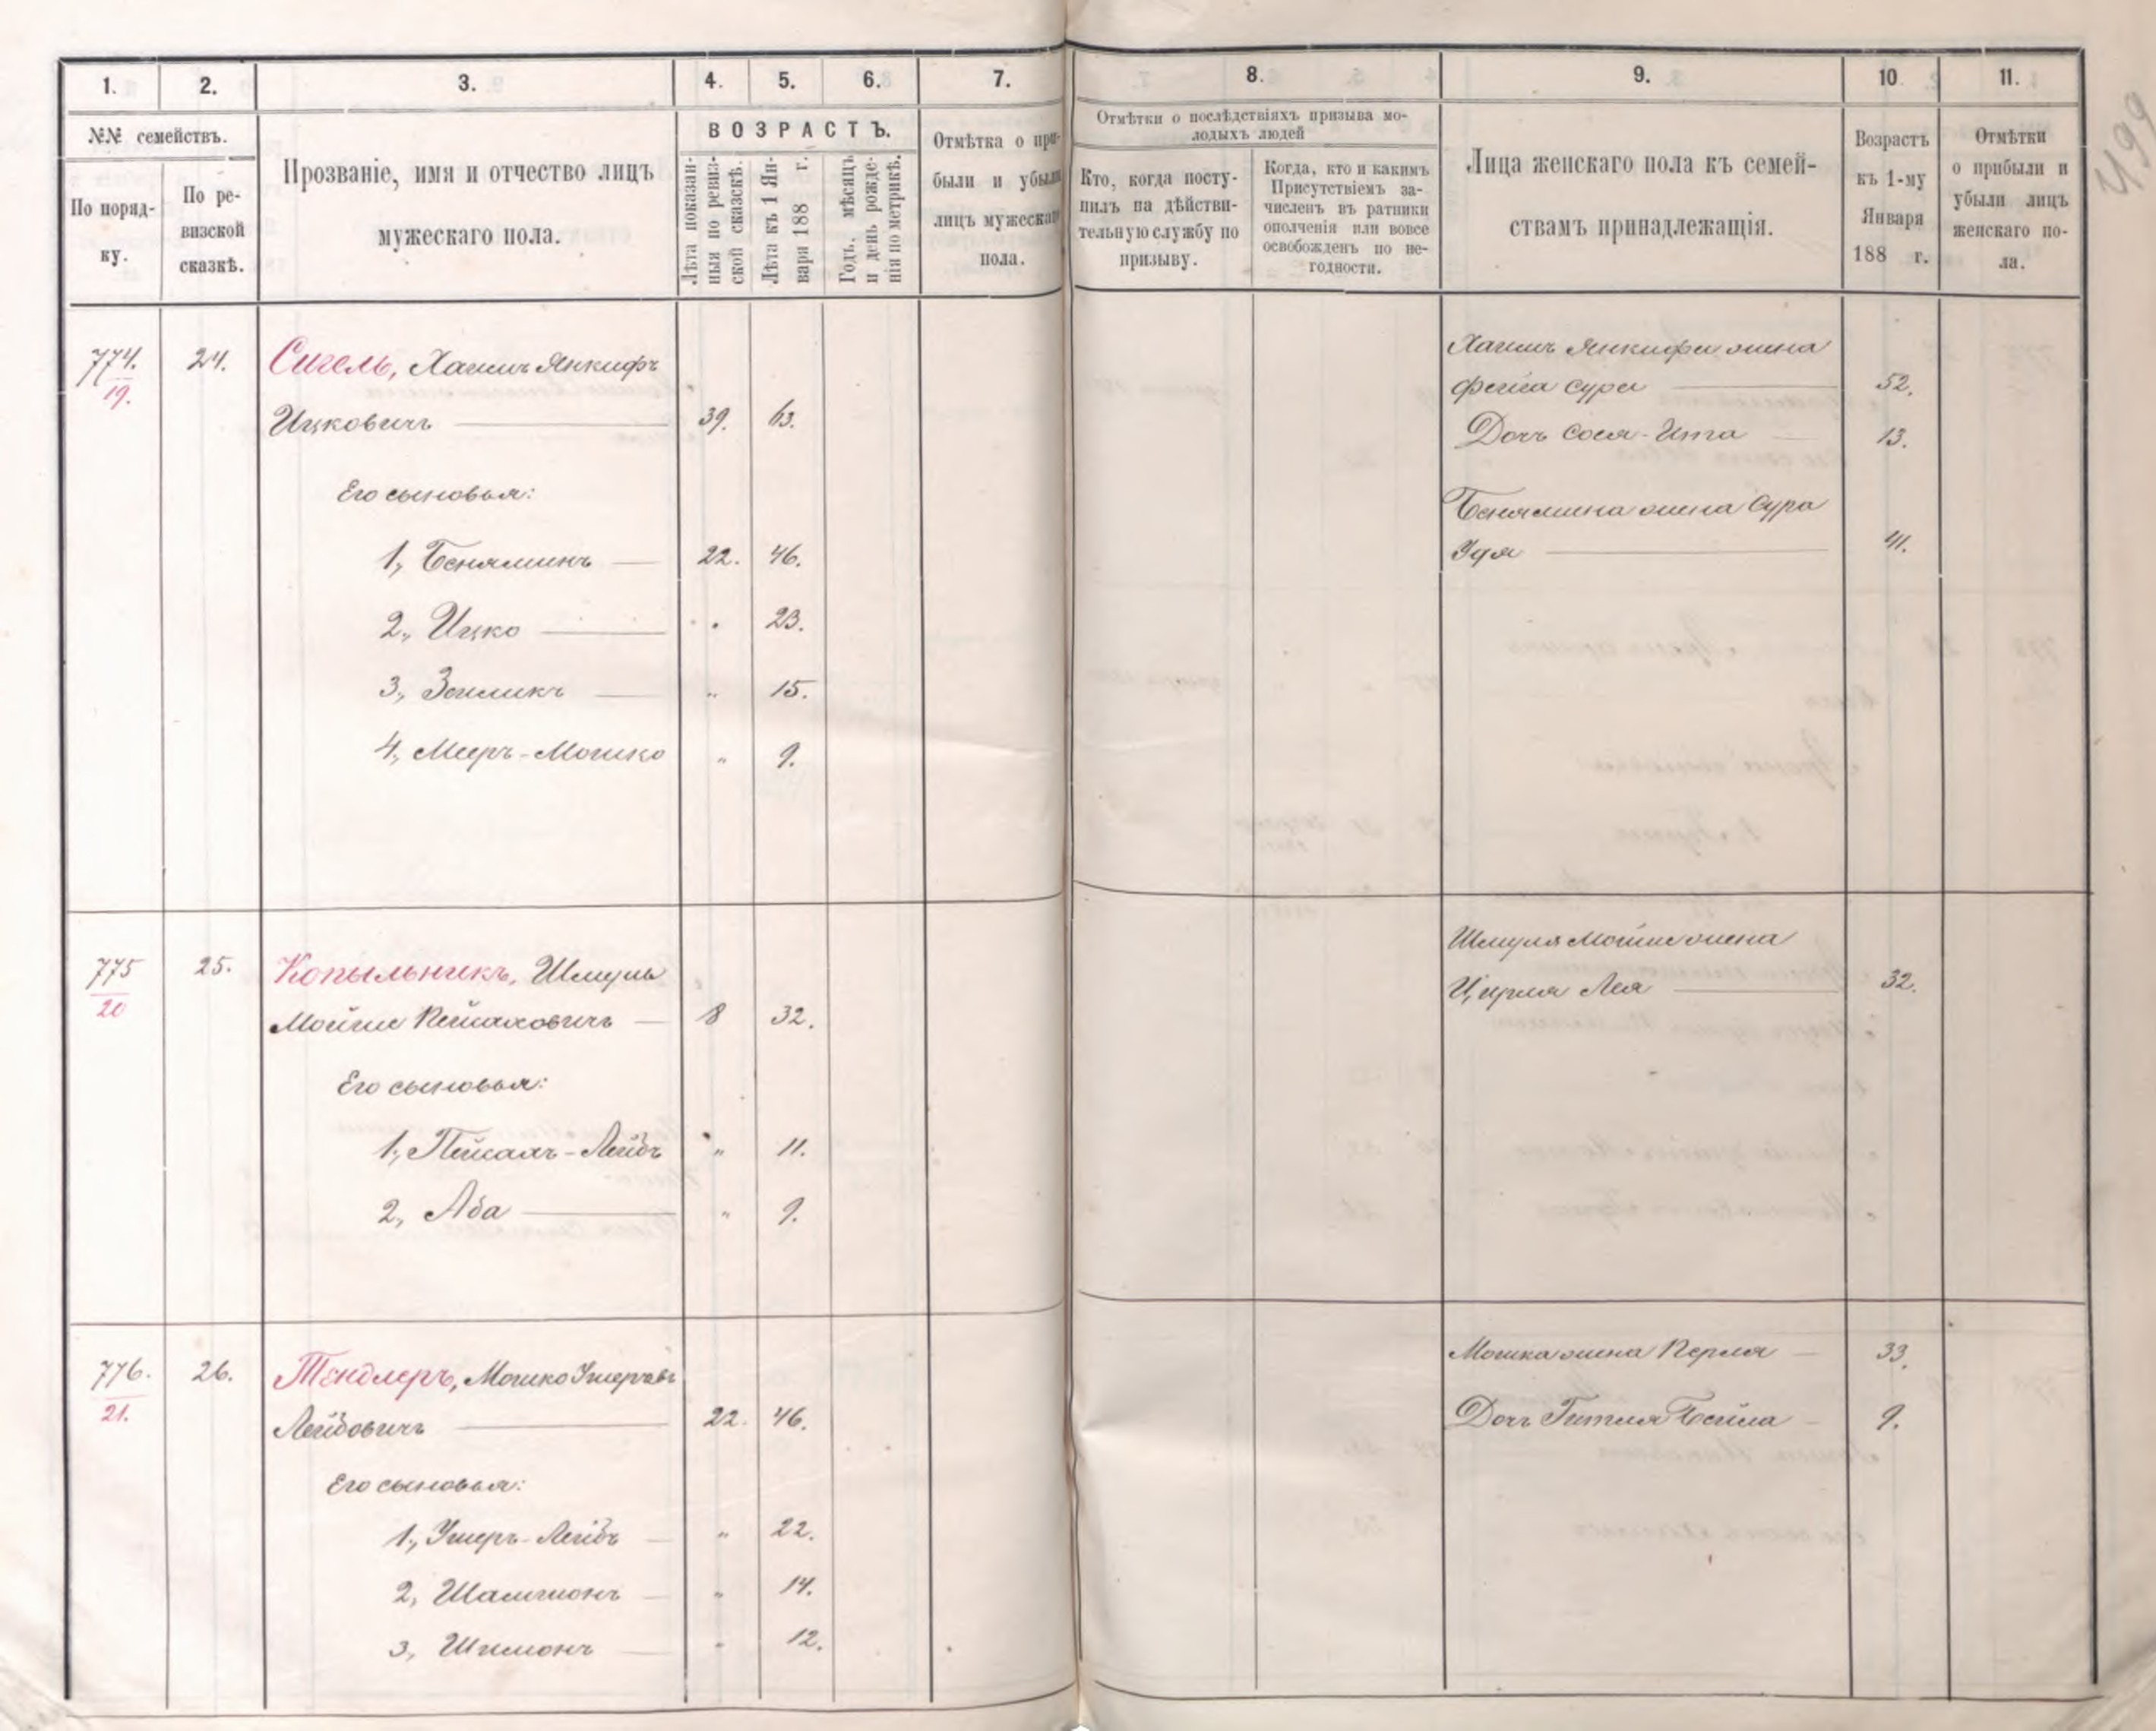 499
1. 2. 3. 4. 5. 6. 7. 8. 9. 10 11.
№№ семействъ.
По поряд-
ку.
По ре-
визской
сказкѣ.
Прозваніе, имя и отчество лицъ
мужескаго пола.
ВОЗРАСТЪ.
Лѣта показан-
ныя по ревиз-
ской сказкѣ.
Лѣта къ 1 Ян-
варя 188 г.
Годъ, мѣсяцъ
и день рожде-
нія по метрикѣ.
Отмѣтка о при-
были и убыли
лицъ мужескаго
пола.
Отмѣтки о послѣдствіяхъ призыва мо-
лодыхъ людей
Кто, когда посту-
пилъ на дѣйстви-
тельную службу по
призыву.
Когда, кто и какимъ
Присутствіемъ за-
численъ въ ратники
ополченія или вовсе
освобожденъ по не-
годности.
Лица женскаго пола къ семей-
ствамъ принадлежащія.
Возрастъ
къ 1-му
Января
188 г.
Отмѣтки
о прибыли и
убыли лицъ
женскаго по-
ла.
774. 24. Сигель, Хаимъ Янкифъ
19.
Ицковичъ 39. 63.
Его сыновья:
1, Беняминъ 22. 46.
2, Ицко " 23.
3, Зейликъ " 15.
4, Мееръ-Мошко " 9.
Хаимъ Янкифа жена
Фейга Сура 52.
Дочь Сося-Ита 13.
Бенямина жена Сура
Удя 41.
775 25. Копыльникъ, Шмуль
20
Мойше Пейсаховичъ 8 32.
Его сыновья:
1, Пейсахъ-Лейбъ " 11.
2, Аба " 9.
Шмуля Мойше жена
Цирля Лея 32.
776. 26. Тендлеръ, Мошко Ушеровъ
21.
Лейбовичъ 22. 46.
Его сыновья:
1, Ушеръ-Лейбъ " 22.
2, Шамшонъ " 14.
3, Шимонъ " 12.
Мошка жена Перля 33.
Дочь Гитля Бейла 9.